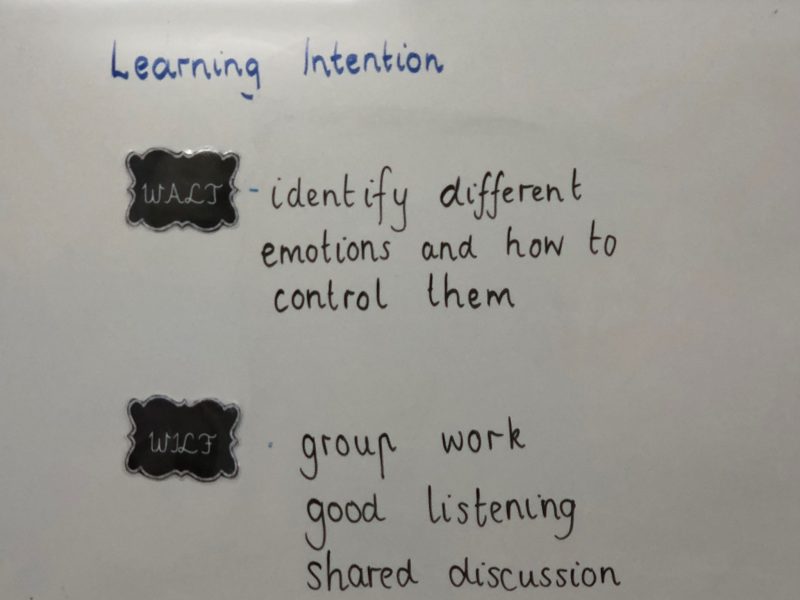 Learning Intention
WALT - identify different
emotions and how to
control them
WILF · group work
good listening
shared discussion